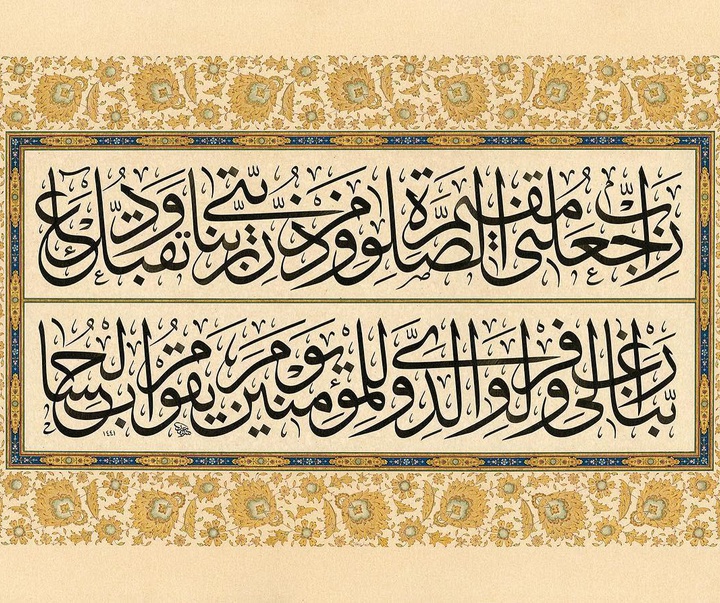 رب اجعلني مقيم الصلوة ومن ذريتي ربنا وتقبل دعاء
ربنا اغفر لي ولوالدي وللمؤمنين يوم يقوم الحساب
١٤٤١